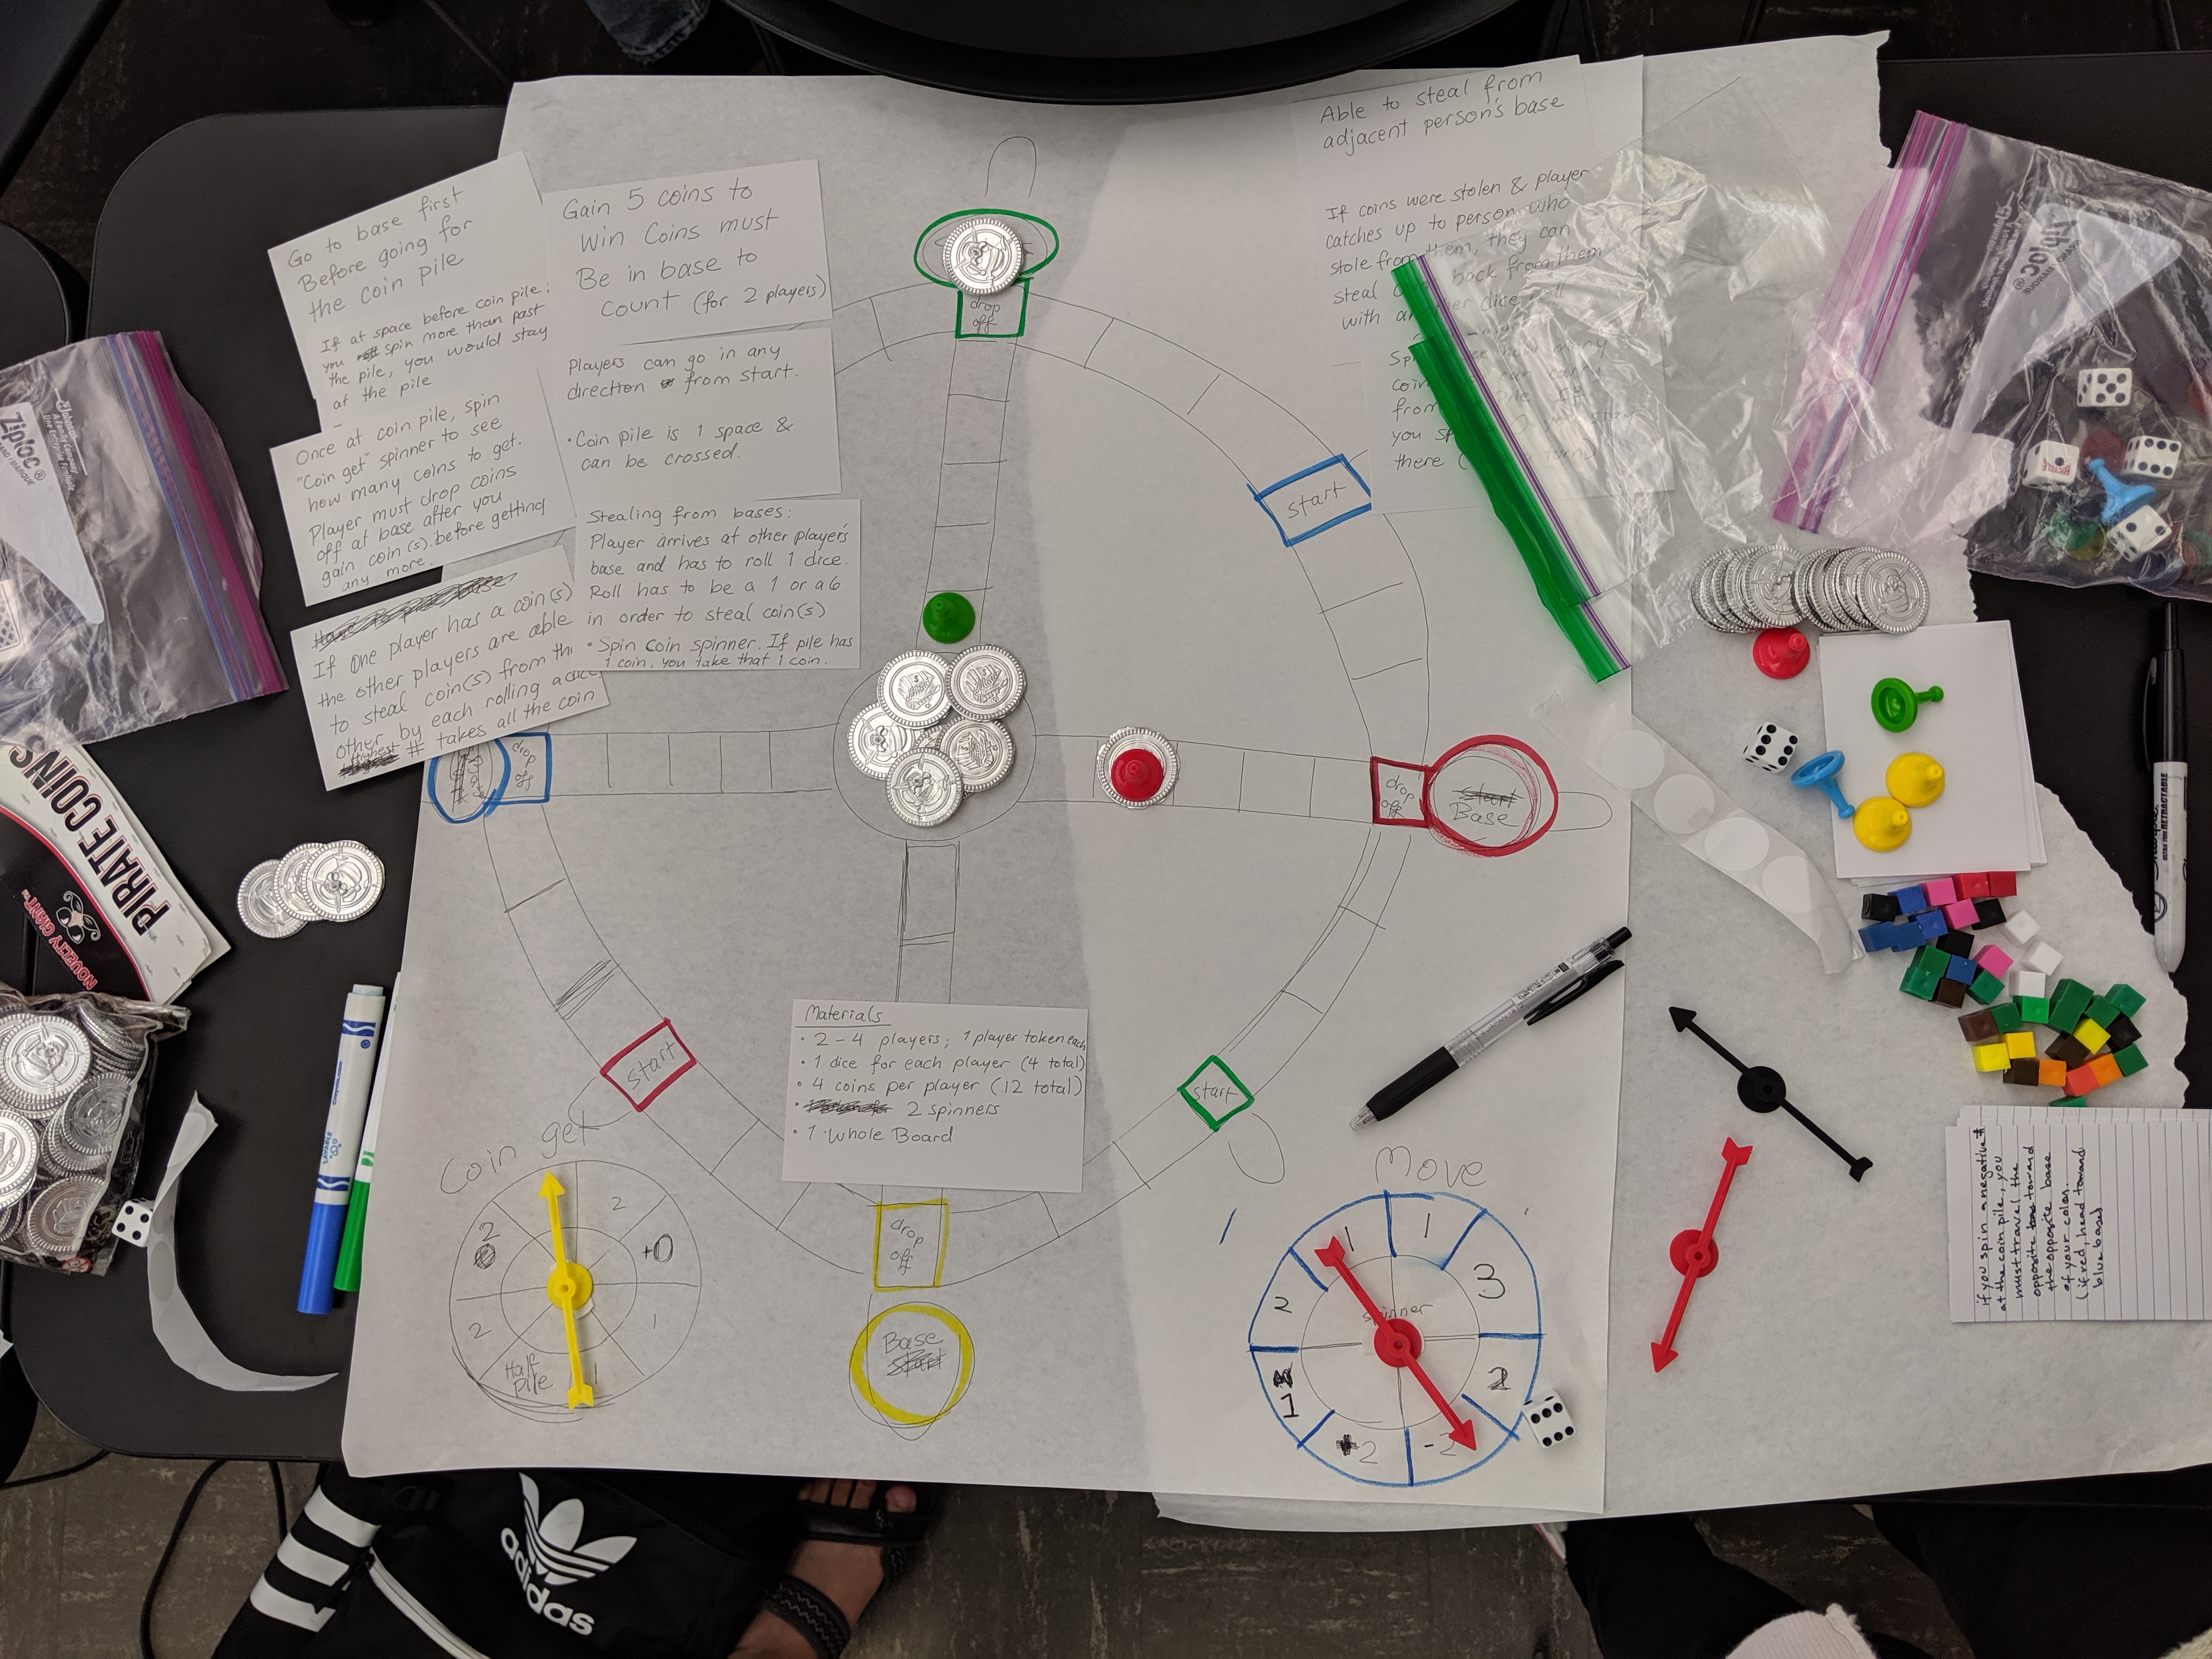 Go to base first
Before going for
the coin pile
If at space before coin pile;
you spin more than past
the pile, you would stay
at the pile
Once at coin pile, spin
"Coin get" spinner to see
how many coins to get.
Player must drop coins
off at base after you
gain coin(s). before getting
any more.
If one player has a coin(s)
the other players are able
to steal coin(s) from
other by each rolling a
# takes all the coin
Gain 5 coins to
Win. Coins must
Be in base to
count (for 2 players)
Players can go in any
direction from start.
• Coin pile is 1 space &
can be crossed.
Stealing from bases:
Player arrives at other player's
base and has to roll 1 dice.
Roll has to be a 1 or a 6
in order to steal coin(s)
• Spin Coin spinner. If pile has
1 coin, you take that 1 coin.
Able to steal from
adjacent person's base
If coins were stolen & player
catches up to person who
stole from them, they can
steal back from them
with dice roll
how many
can carry
from pile. If
you
there
drop
off
start
drop
off
start
Base
drop
off
start
start
drop
off
Base
start
Materials
• 2 - 4 players; 1 player token each
• 1 dice for each player (4 total)
• 4 coins per player (12 total)
• 2 spinners
• 1 Whole Board
Coin get
2
+0
1
1
Half
Pile
2
2
Move
spinner
1
3
2
-2
2
1
2
1
if you spin a negative #
at the coin pile, you
must travel the
opposite toward
the opposite base
of your color.
(if red, head toward
blue base)
PIRATE COINS
NOVELTY GIANT
Ziploc®
Ziploc®
BICYCLE
adidas